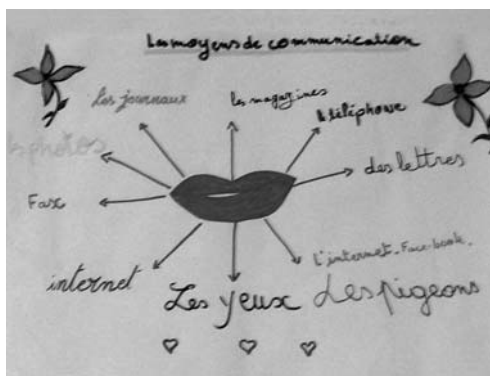 Les moyens de communication
Les journaux
les magazines
le téléphone
les photos
des lettres
Fax
internet
L'internet. Face-book.
Les yeux
Les pigeons